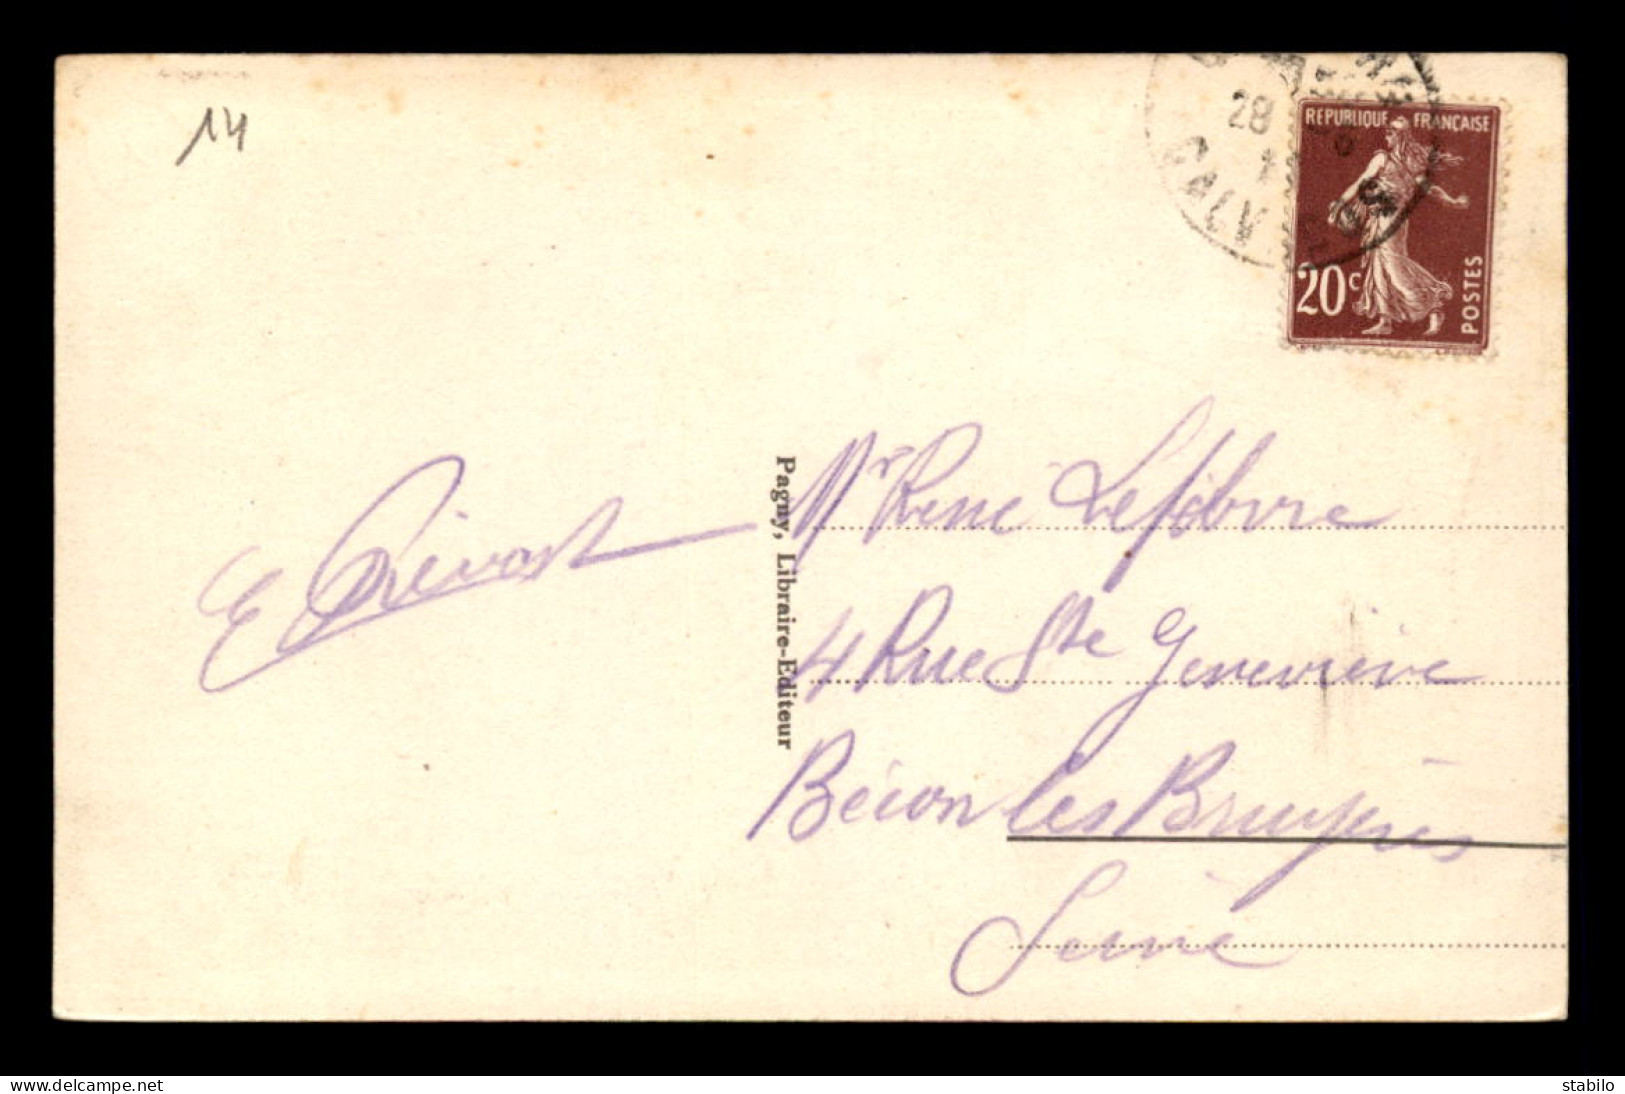 14
28
CALVADOS
REPUBLIQUE FRANÇAISE
20c
POSTES
E Prévost
Pagny, Libraire-Editeur
Mr René Lefebvre
4 Rue Ste Geneviève
Bécon les Bruyères
Seine
delcampe.net
stabilo